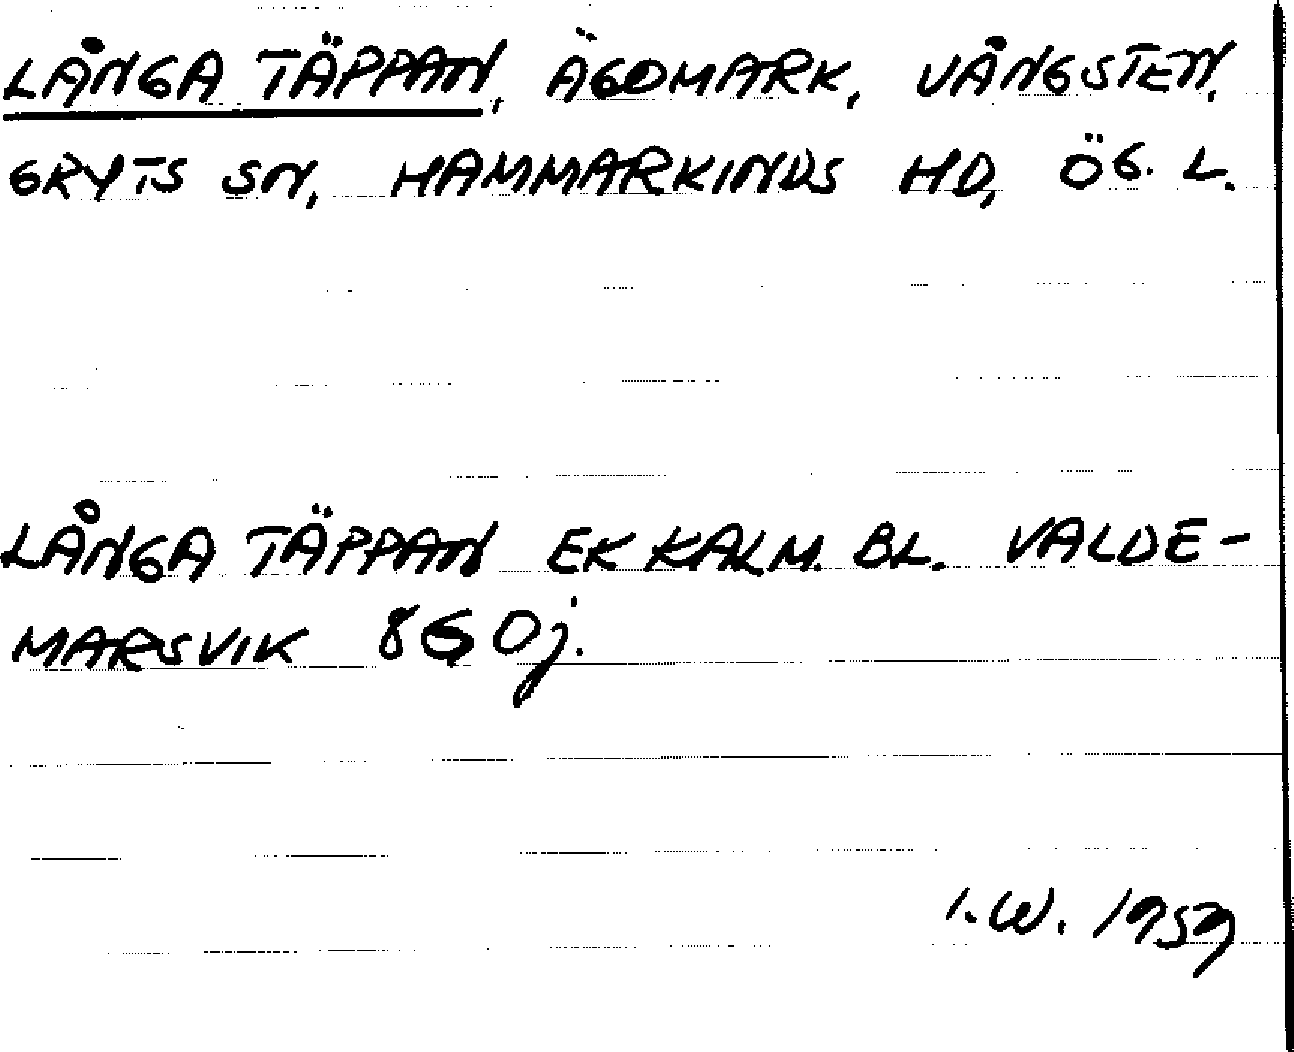 LÅNGA TÄPPAN, ÄGOMARK, VÅNGSTEN,
GRYTS SN, HAMMARKINDS HD, ÖG. L.
LÅNGA TÄPPAN EK KALM. BL. VALDE-
MARSVIK 8G0j.
I.W. 1959